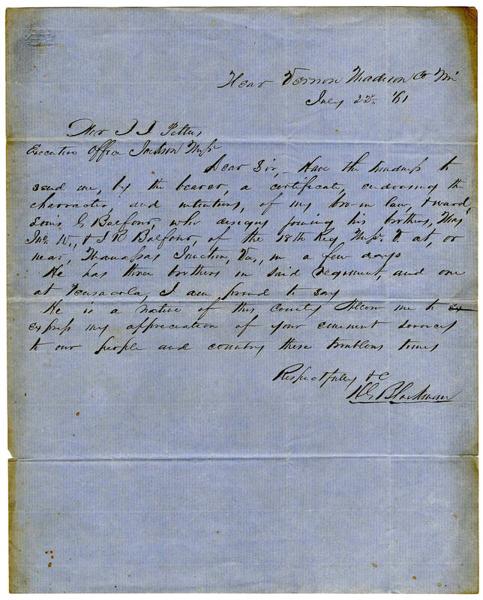 Near Vernon Madison Co Mi
July 22. '61
J. J. Pettus
Executive Office Jackson Missi
Dear Sir, Have the kindness to
send me, by the bearer, a certificate, endorsing the
character, and intentions, of my bro-in law,
Louis G Balfour, who designs joining his brothers,
W., & J R Balfour, of the 18th Reg Missi V. at, or
near, Manassas Junction, Va., in a few days
He has three brothers in said regiment, and one
at Pensacola, I am proud to say
He is a native of this county Allow me to ex
express my appreciation of your eminent services
to our people and country these troublous times
Respectfully &c
H G Blackman